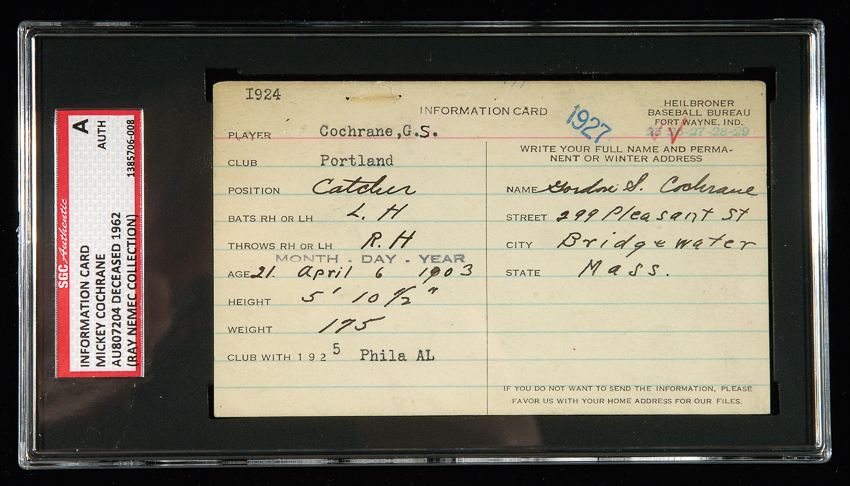 A
AUTH
1385706-008
SGC Authentic
INFORMATION CARD
MICKEY COCHRANE
AU807204 DECEASED 1962
(RAY NEMEC COLLECTION)
1924
INFORMATION CARD
1927
HEILBRONER
BASEBALL BUREAU
FORT WAYNE, IND.
27-28-29
PLAYER Cochrane,G.S.
CLUB Portland
POSITION Catcher
BATS RH OR LH L. H
THROWS RH OR LH R. H
MONTH - DAY - YEAR
AGE 21. April 6 1903
HEIGHT 5' 10 1/2"
WEIGHT 175
CLUB WITH 192 5 Phila AL
WRITE YOUR FULL NAME AND PERMA-
NENT OR WINTER ADDRESS
NAME Gordon S. Cochrane
STREET 299 Pleasant St
CITY Bridgewater
STATE Mass.
IF YOU DO NOT WANT TO SEND THE INFORMATION, PLEASE
FAVOR US WITH YOUR HOME ADDRESS FOR OUR FILES.